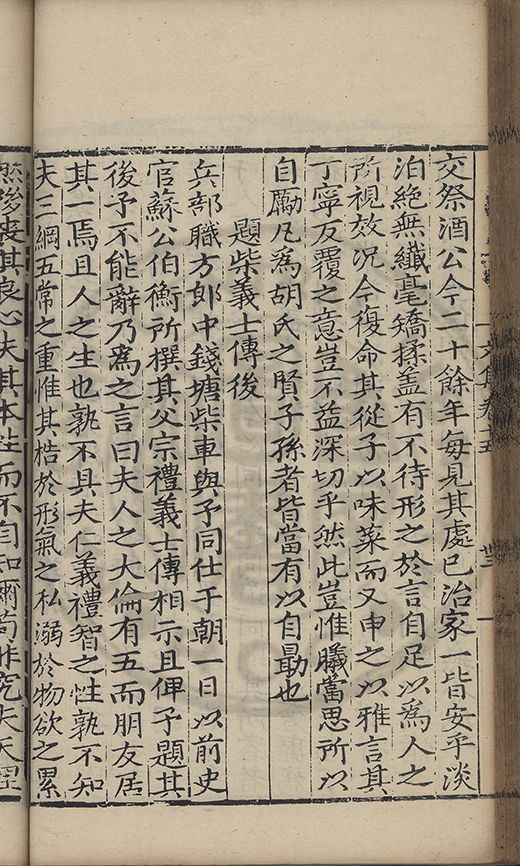 文集卷十五
卅三
交祭酒公今二十餘年每見其處已治家一皆安乎淡
泊絶無纖毫矯揉盖有不待形之於言自足以為人之
所視效况今復命其從子以味菜而又申之以雅言其
丁寧反覆之意豈不益深切乎然此豈惟曦當思所以
自勵凡為胡氏之賢子孫者皆當有以自勗也
題柴義士傳後
兵部職方郎中錢塘柴車與予同仕于朝一日以前史
官蘇公伯衡所撰其父宗禮義士傳相示且俾予題其
後予不能辭乃為之言曰夫人之大倫有五而朋友居
其一焉且人之生也孰不具夫仁義禮智之性孰不知
夫三綱五常之重惟其梏於形氣之私溺於物欲之累
然後喪其良心失其本性而不自知爾苟非究夫天理